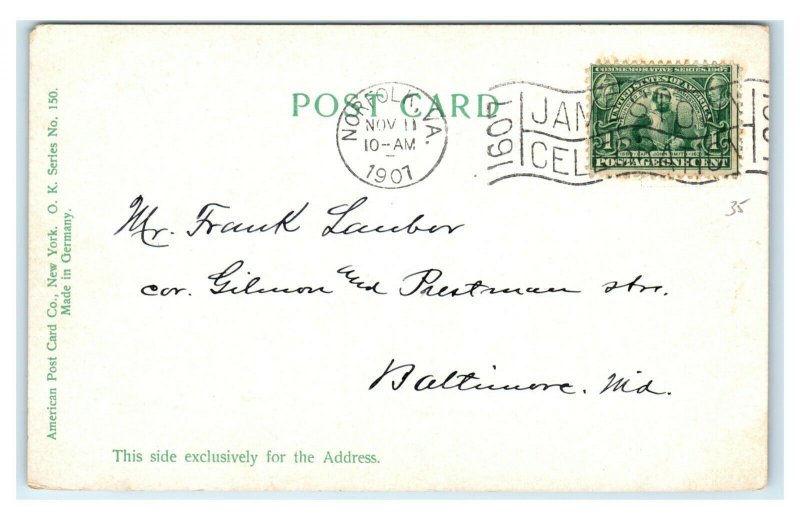 POST CARD
NORFOLK, VA.
NOV 11
10-AM
1907
1607
JAMESTOWN
CEL
COMMEMORATIVE SERIES 1907
UNITED STATES OF AMERICA
1 1
POSTAGE ONE CENT
35
Mr. Frank Lauber
cor. Gilmon and Prestman strs.
Baltimore. Md.
This side exclusively for the Address.
American Post Card Co., New York. O. K. Series No. 150.
Made in Germany.